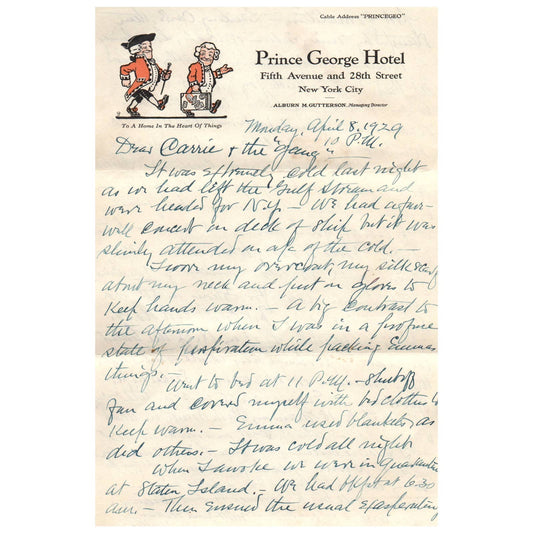 Cable Address "PRINCEGEO"
Prince George Hotel
Fifth Avenue and 28th Street
New York City
ALBURN M. GUTTERSON, Managing Director
To A Home In The Heart Of Things
Monday, April 8, 1929
10 P.M.
Dear Carrie & the "Gang"
It was extremely cold last night
as we had left the Gulf Stream and
were headed for N.Y. — We had a fare-
well concert on deck of ship but it was
slimly attended on a/c of the cold. —
I wore my overcoat, my silk scarf
about my neck and put on gloves to
keep hands warm. — A big contrast to
the afternoon when I was in a profuse
state of perspiration while packing Emmas
things. —
Went to bed at 11 P.M. — Shut off
fan and covered myself with bed clothes to
keep warm. — Emma used blankets, as
did others. — It was cold all night
When I awoke we were in Quarantine
at Staten Island. — We had bkfst at 6:30
am. — Then ensued the usual exasperating